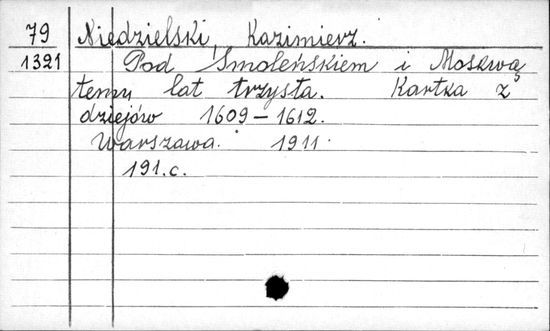 79 Niedzielski, Kazimierz.
1321 Pod Smoleńskiem i Moskwą
temu lat trzysta. Kartka z
dziejów 1609-1612.
Warszawa. 1911.
191.c.